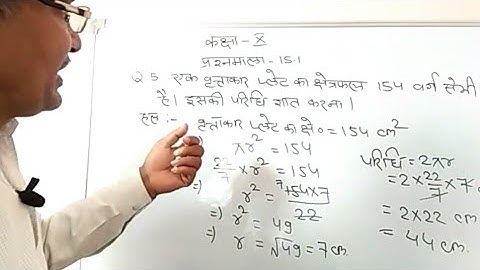 कक्षा - X
प्रश्नमाला - 15.1
Q 5 एक वृत्ताकार प्लेट का क्षेत्रफल 154 वर्ग सेमी
है। इसकी परिधि ज्ञात करना।
हल :- वृत्ताकार प्लेट का क्षे० = 154 cm²
πr² = 154
22/7 × r² = 154
⇒ r² = 7 154×7 / 22
⇒ r² = 49
⇒ r = √49 = 7 cm.
परिधि = 2πr
= 2 × 22/7 × 7 c
= 2 × 22 cm
= 44 cm.